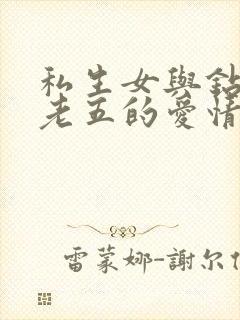 私生女與鉆
老五的愛情
雷蒙娜-謝尔